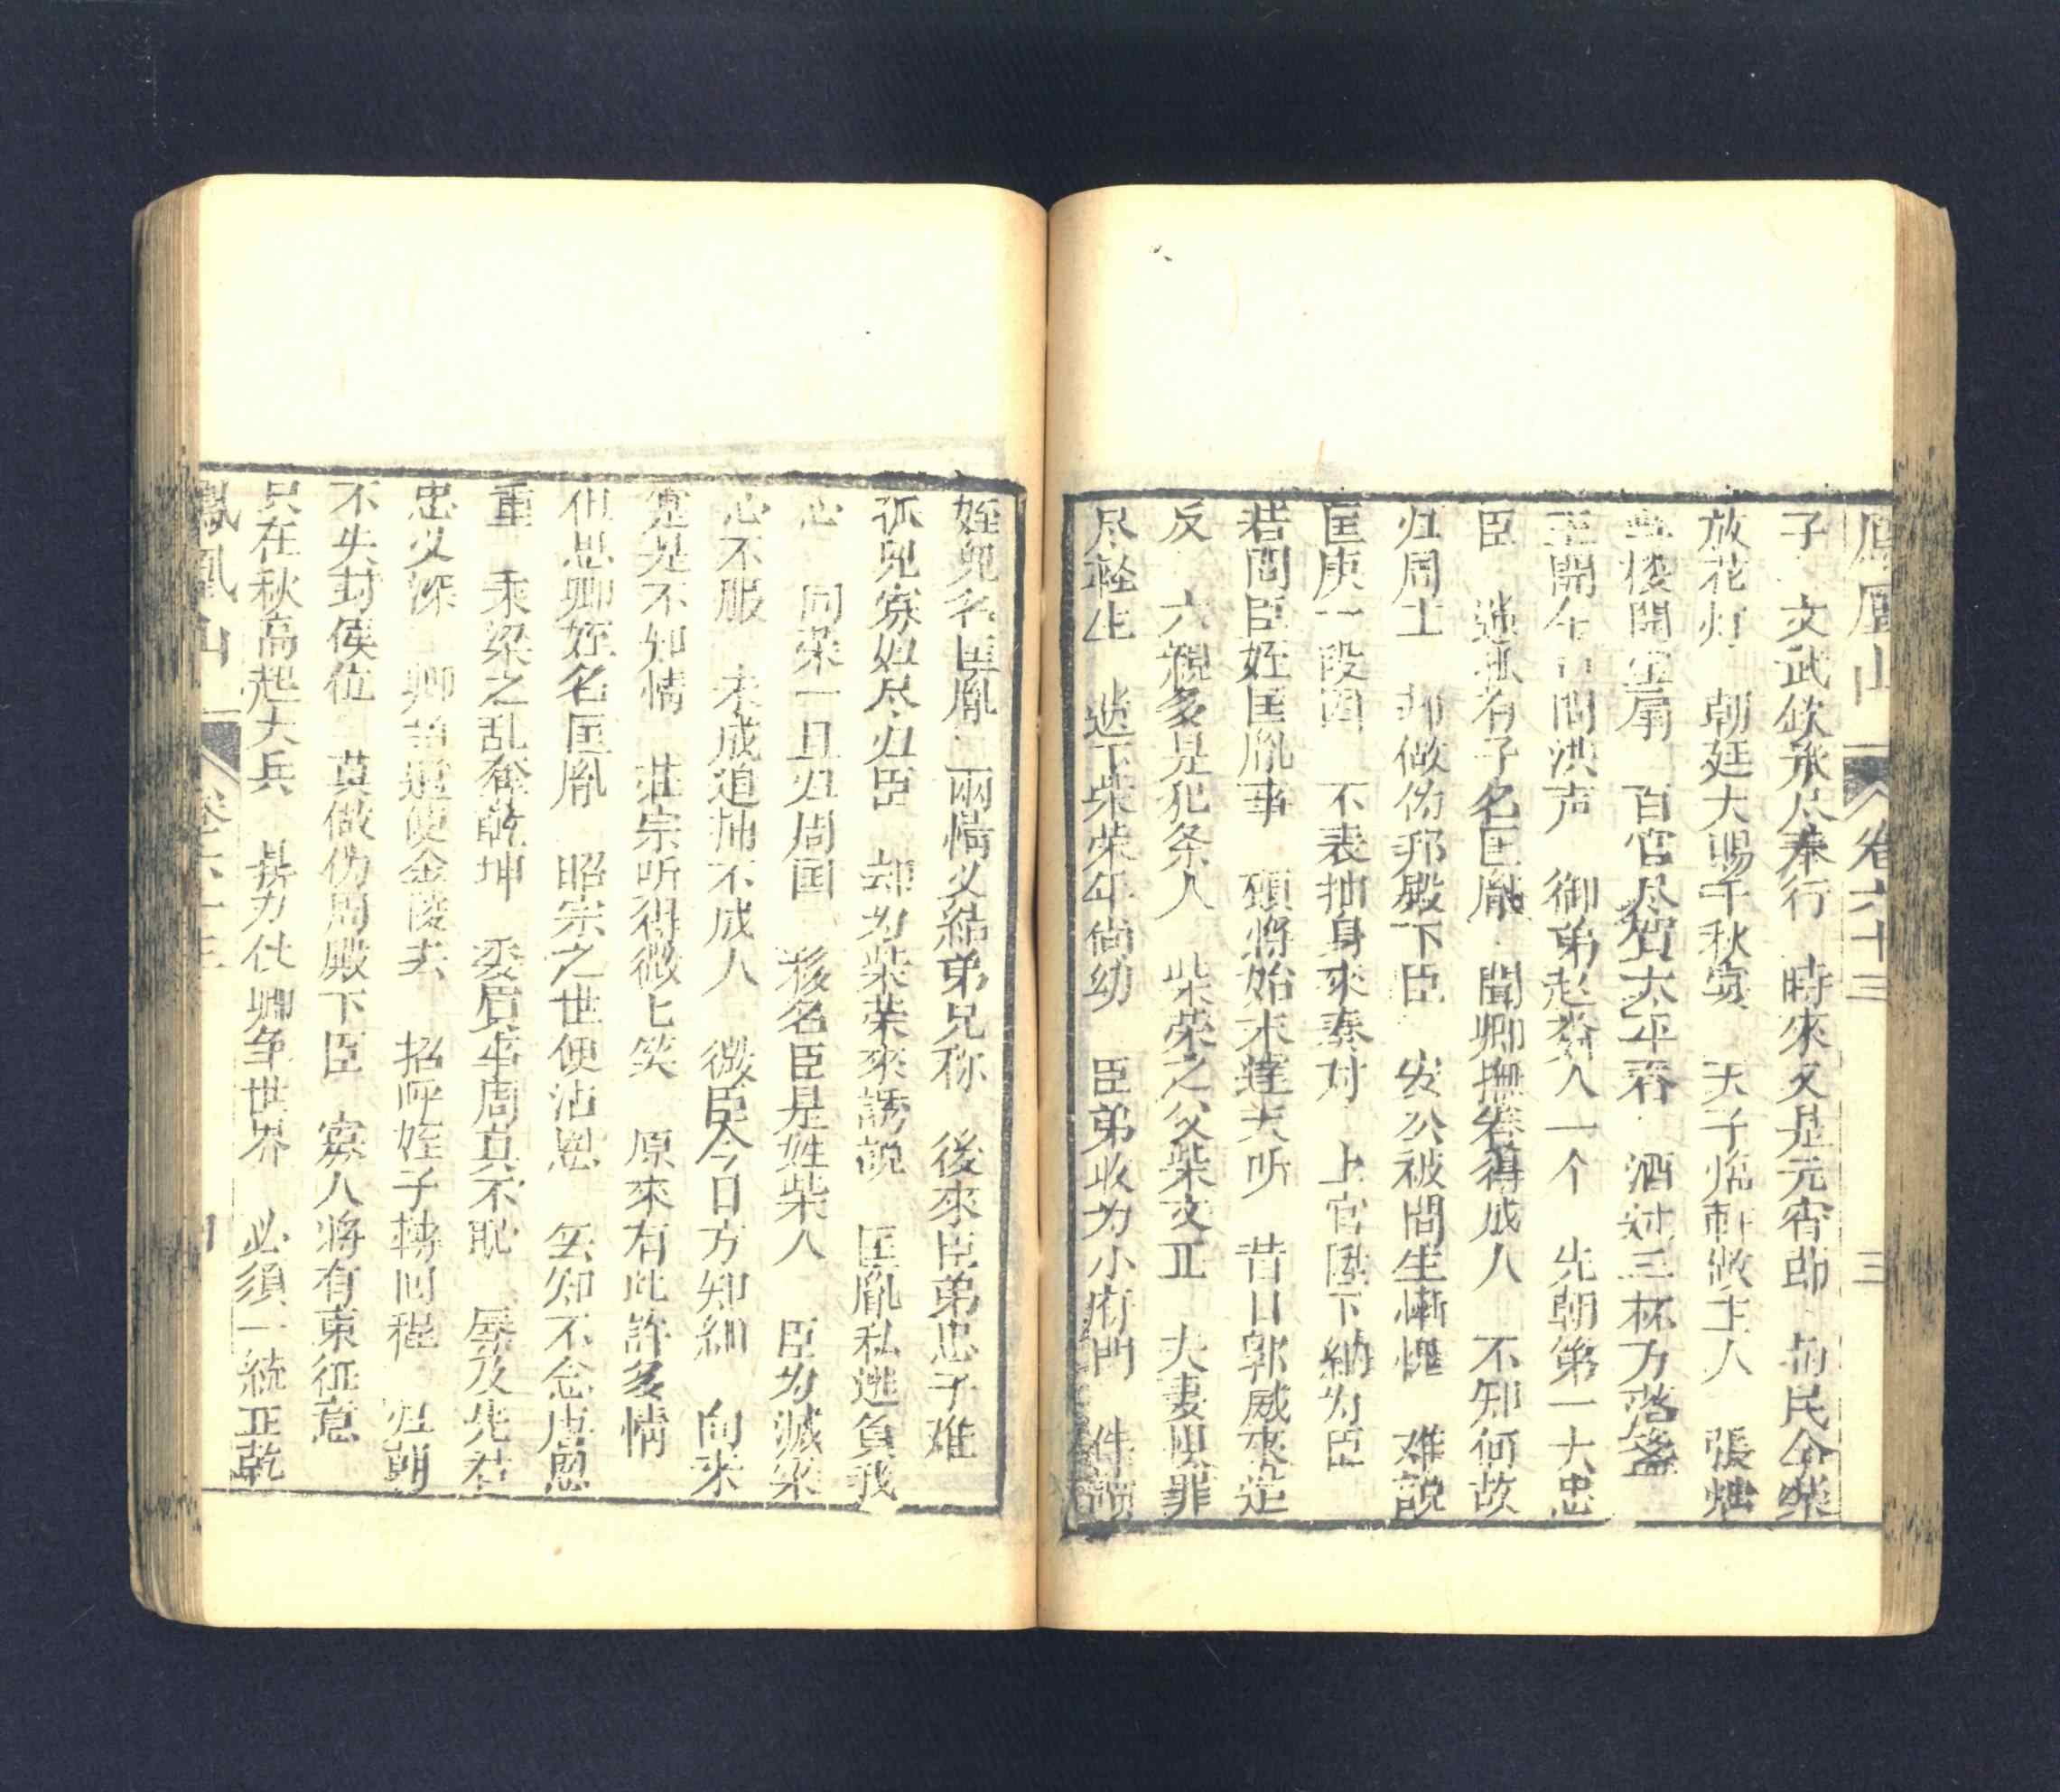 鳳凰山 卷六十三 三
子 文武欽承尽奉行 時來又是元宵節 与民仝樂
放花灯 朝廷大賜千秋宴 天子臨軒做主人 張灿
楼開 百官尽賀太平春 酒过三杯方落盞
王開 問洪声 御弟赵 人一个 先朝第一大忠
臣 遺孤有子名匡胤 聞卿撫養得成人 不知何故
归周士 却做伪邦殿下臣 安公被問生慚愧 难説
匡庚一段因 不表抽身來奏对 上官陛下納为臣
若問臣姪匡胤事 頭將始末達天听 昔日郭威來造
反 六親多是犯条人 柴荣之父柴文正 夫妻惧罪
尽軽生 遺下柴荣年尚幼 臣弟收为小府門 件讀
姪兒名匡胤 兩情义結弟兄称 後來臣弟忠子难
孤兒寡妇尽归臣 却为柴荣來誘説 匡胤私逃負我
心 同荣一旦归周国 移名臣是姓柴人 臣为滅梁
心不服 未成道捕不成人 微臣今日方知細 向來
寃是不知情 庄宗听得微匕笑 原來有此許多情
但思卿姪名匡胤 昭宗之世便沾恩 怎知不念唐恩
重 乘梁之乱奪乾坤 委眉事周真不耻 辱及先君
忠义深 卿當道使金陵去 招呼姪子轉囬程 归朝
不失封侯位 莫做伪周殿下臣 寡人將有東征意
只在秋高起大兵 势力伏卿争世界 必須一統正乾
鳳凰山 卷六十三 四